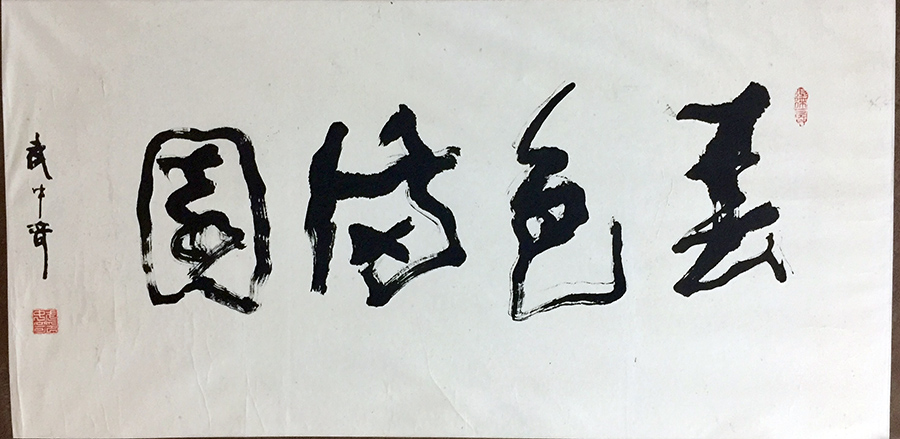 春色满園
武中奇